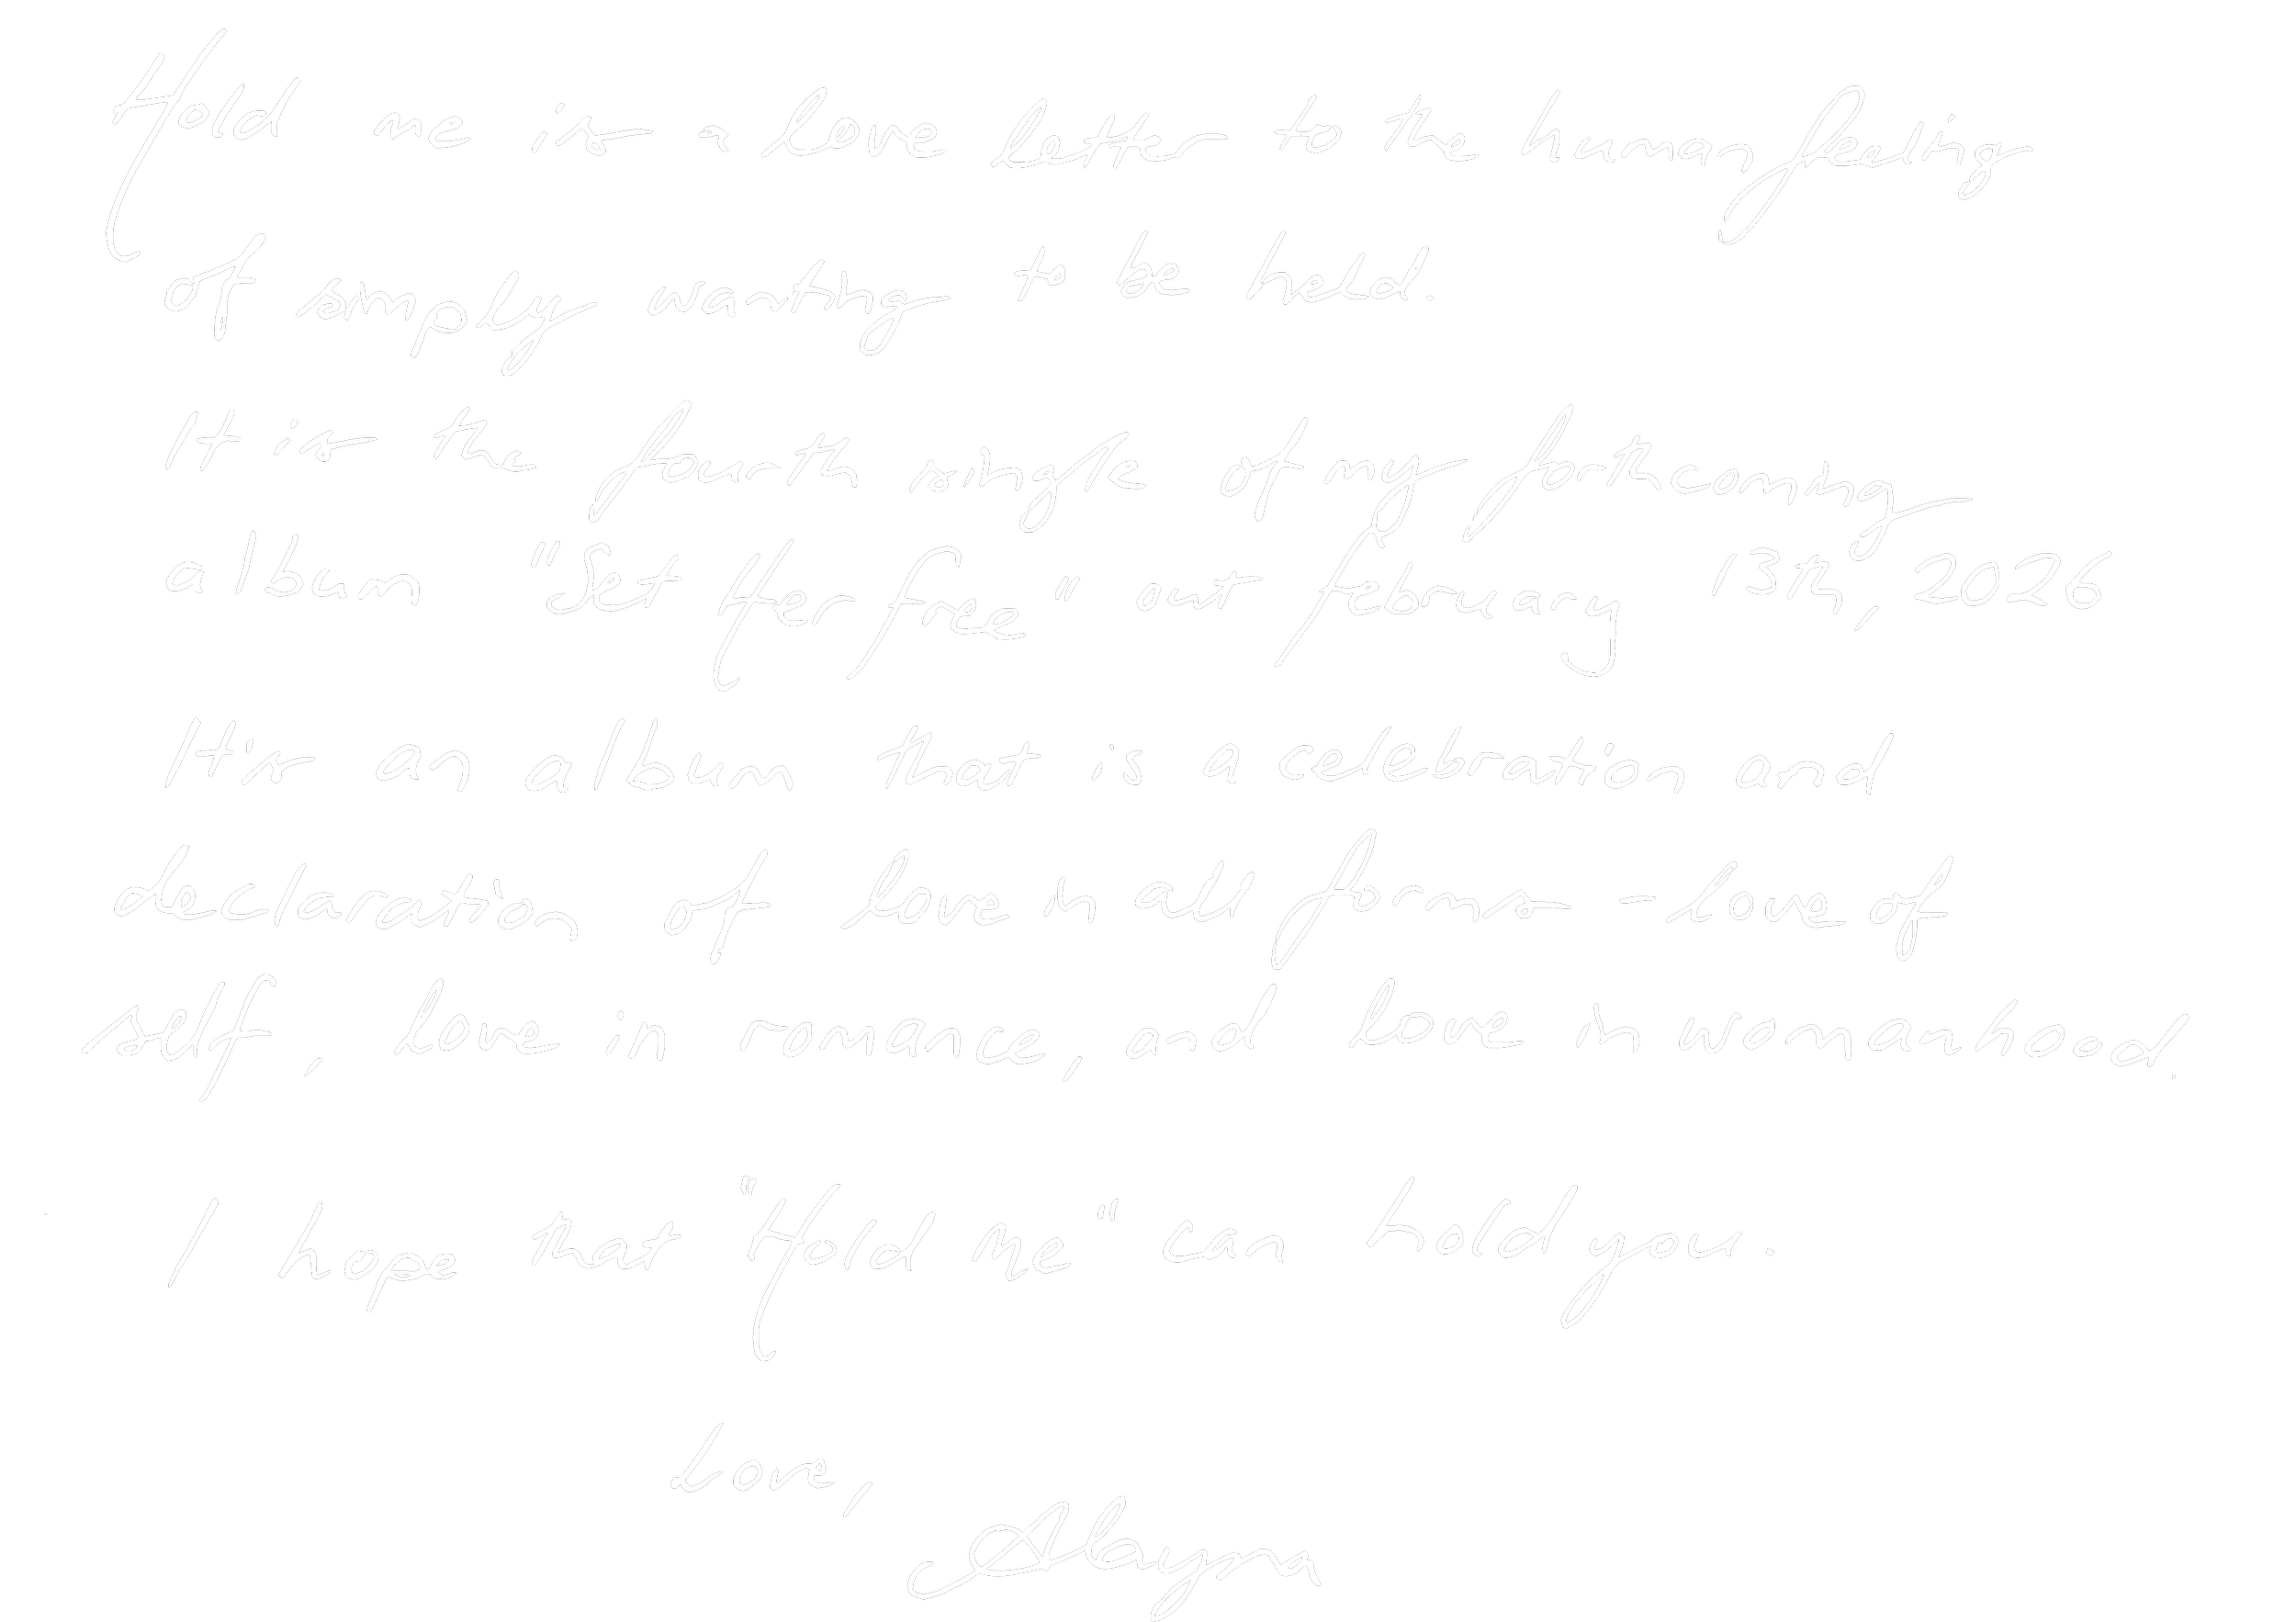 Hold me is a love letter to the human feeling
of simply wanting to be held.
It is the fourth single of my forthcoming
album "Set Her free" out february 13th, 2026
It's an album that is a celebration and
declaration of love in all forms - love of
self, love in romance, and love in womanhood.
I hope that "Hold Me" can hold you.
Love,
Alayna